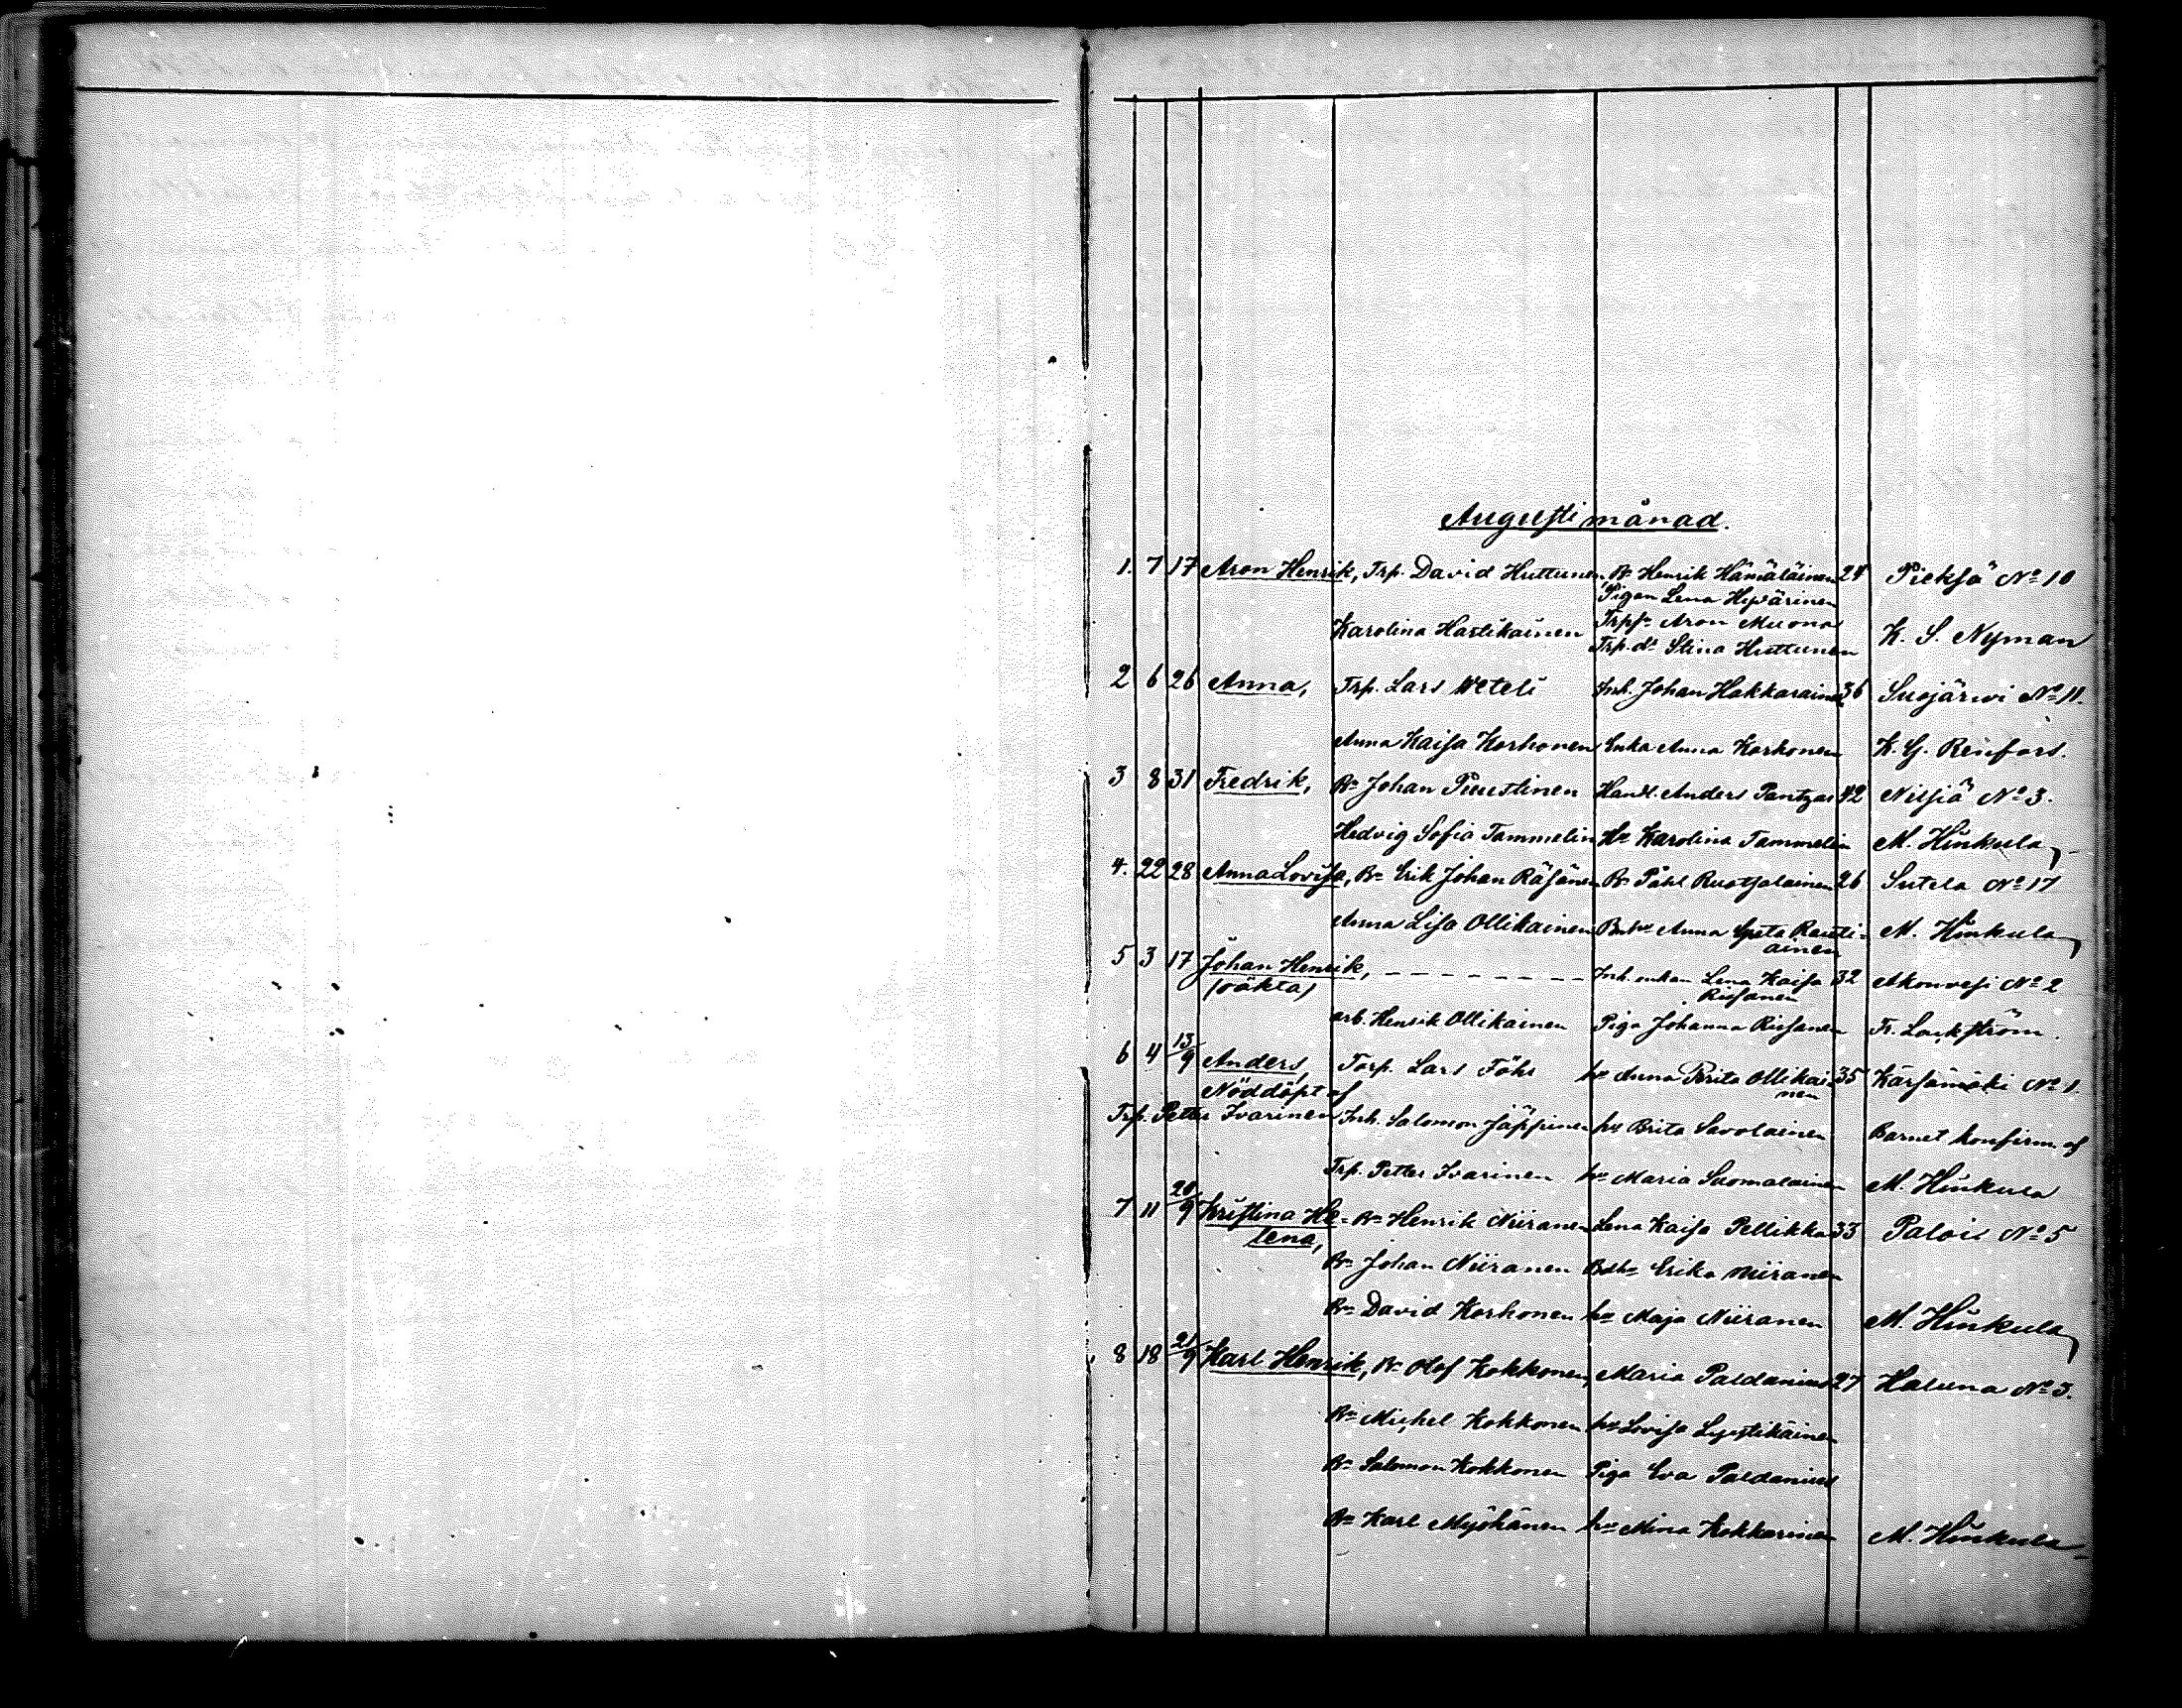 Augusti månad.
1. 7 17 Aron Henrik, Trp. David Huttunen, Bn Henrik Hämäläinen 24 Pieksä No 10
Pigan Lena Hyvärinen
Karolina Hartikainen Trpsn Aron Muona K. S. Nyman
Trp.dr Stina Huttunen
2 6 26 Anna, Trp. Lars Weteli Inh. Johan Hakkarainen 36 Suojärwi No 11.
Anna Kaisa Korhonen Enka Anna Korhonen K. G. Renfors.
3 8 31 Fredrik, Bn Johan Puustinen Handl. Anders Pantzar 42 Nilsiä No 3.
Hedvig Sofia Tammelin Hu Karolina Tammelin M. Hinkula
4. 22 28 Anna Lovisa, Bn Erik Johan Räsänen Bn Påhl Ruotsalainen 26 Sutela No 17
Anna Lisa Ollikainen Bnhu Anna Greta Rauti- M. Hinkula
ainen
5 3 17 Johan Henrik, - - - - - - - - Inh. enkan Lena Kaisa 32 Akonvesi No 2
(oäkta) Rissanen
arb. Henrik Ollikainen Piga Johanna Rissanen Fr. Lackström.
6 4 13/9 Anders, Torp. Lars Föhr hu Anna Brita Ollikai- 35 Kärsämäki No 1.
Nöddöpt af nen
Trp. Petter Ivarinen Inh. Salomon Jäppinen hu Brita Savolainen Barnet konfirm. af
Trp. Petter Ivarinen hu Maria Suomalainen M. Hinkula
7 11 20/9 Kristina He- Bn Henrik Niiranen Lena Kaisa Pellikka 33 Palois No 5
lena,
Bn Johan Niiranen Bdhu Erika Niiranen
Bn David Korhonen hu Maja Niiranen M. Hinkula
8 18 21/9 Karl Henrik, Bn Olof Kokkonen, Maria Paldanius 27 Haluna No 3.
Bn Michel Kokkonen hu Lovisa Lyystikäinen
Bn Salomon Kokkonen Piga Eva Paldanius
Bn Karl Myöhänen hu Mina Kokkarinen M. Hinkula